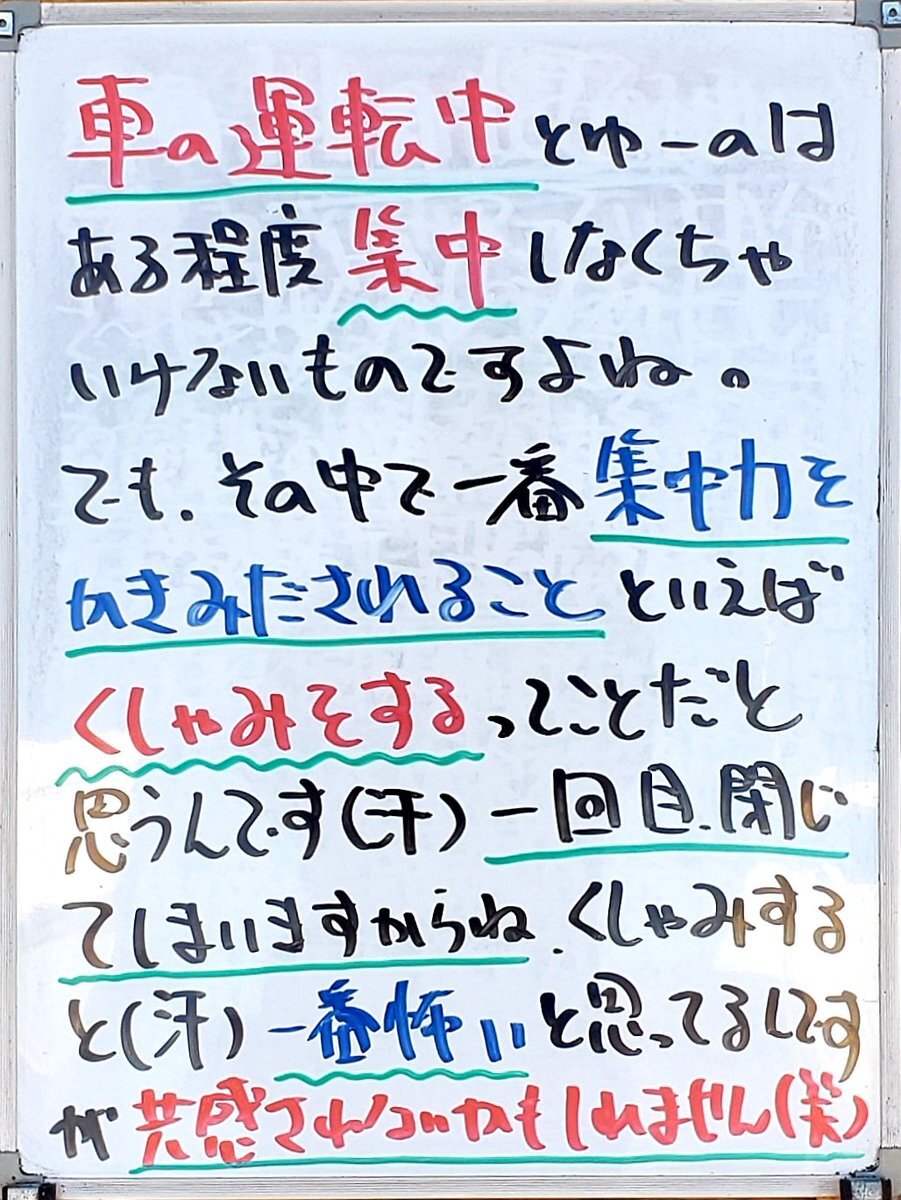 車の運転中とゆーのは
ある程度集中しなくちゃ
いけないものですよね。
でも、その中で一番集中力を
かきみだされることといえば
くしゃみをするってことだと
思うんです(汗)一回目、閉じ
てしまいますからね、くしゃみする
と(汗)一番怖いと思ってるんです
が共感されないかもしれません(笑)